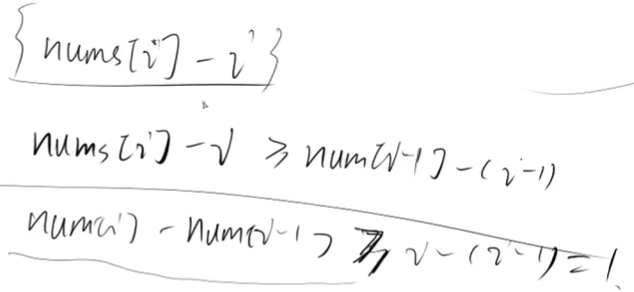 {nums[i] - i}
nums[i] - i ≥ num[i-1] - (i-1)
num[i] - num[i-1] ≥ i - (i-1) = 1